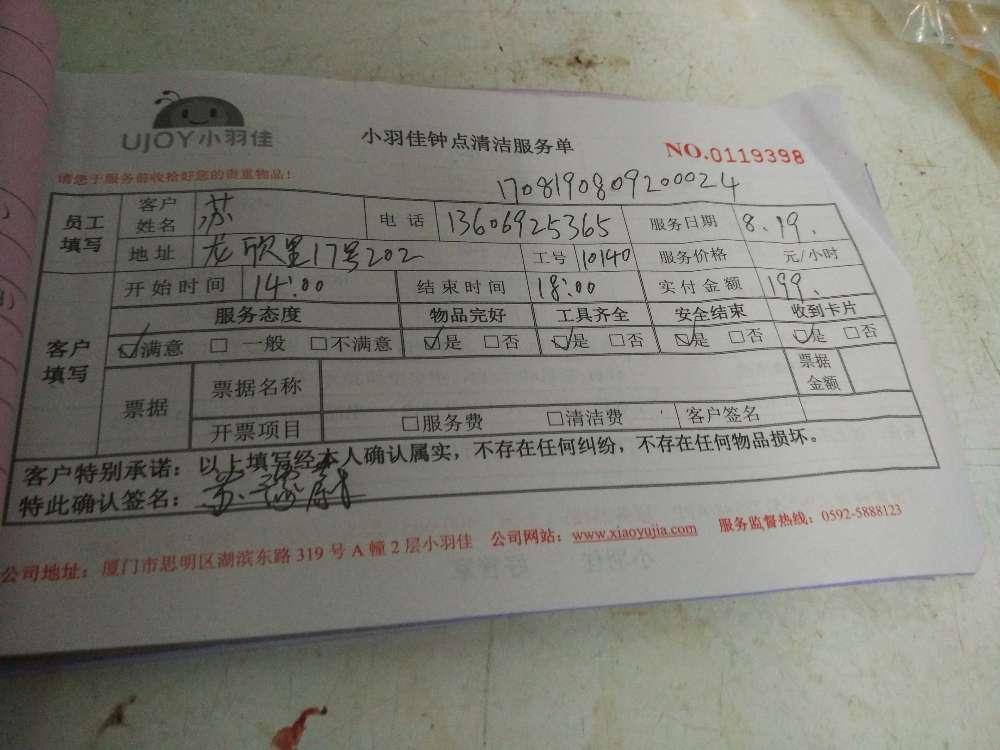 UJOY小羽佳
小羽佳钟点清洁服务单
NO.0119398
请您于服务前收拾好您的贵重物品!
1708190809200024
员工填写 客户姓名 苏 电话 13606925365 服务日期 8.19.
地址 龙欣里17号202 工号 10140 服务价格 元/小时
开始时间 14:00 结束时间 18:00 实付金额 199.
客户填写 服务态度 物品完好 工具齐全 安全结束 收到卡片
☑满意 □ 一般 □不满意 ☑是 □否 ☑是 □否 ☑是 □否 ☑是 □否
票据 票据名称 票据金额
开票项目 □服务费 □清洁费 客户签名
客户特别承诺:以上填写经本人确认属实,不存在任何纠纷,不存在任何物品损坏。
特此确认签名:苏
公司地址:厦门市思明区湖滨东路 319 号 A 幢 2 层小羽佳 公司网站:www.xiaoyujia.com 服务监督热线:0592-5888123